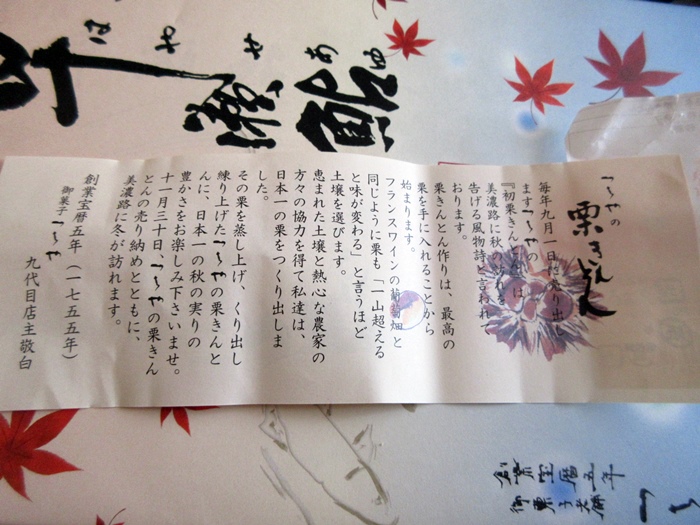 はやせ
あゆ
鮎
つくやの
栗きんとん
毎年九月一日に売り出し
ます
『初栗きんとん』は
美濃路に秋の訪れを
告げる風物詩と言われて
おります。
栗きんとん作りは、最高の
栗を手に入れることから
始まります。
フランスワインの葡萄畑と
同じように栗も「一山超える
と味が変わる」と言うほど
土壌を選びます。
恵まれた土壌と熱心な農家の
方々の協力を得て私達は、
日本一の栗をつくり出しま
した。
その栗を蒸し上げ、くり出し
練り上げたつくやの栗きんと
んに、日本一の秋の実りの
豊かさをお楽しみ下さいませ。
十一月三十日、つくやの栗きん
とんの売り納めとともに、
美濃路に冬が訪れます。
創業宝暦五年(一七五五年)
御菓子 つくや
九代目店主敬白
創業宝暦五年
御菓子老舗